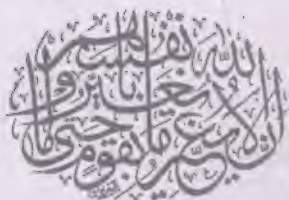 إن الله لا يغير ما بقوم حتى يغيروا ما بأنفسهم